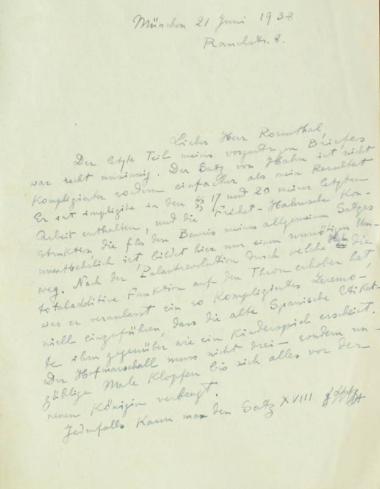 München 21 Juni 1938
Rauchstr. 8.
Lieber Herr Rosenthal,
Der letzte Teil meines vorgestrigen Briefes
war recht unsinnig. Der Satz von Hahn ist nicht
komplizierter sondern einfacher als mein Resultat
Er ist implizite in den §§ 17 und 20 meiner letzten
Arbeit enthalten, und die Fréchet-Hahnsche Kon-
struktion die für den Beweis meines allgemeinen Satzes
unentbehrlich ist bildet hier nur einen unnötigen Um-
weg. Nach der Palastrevolution durch welche die
totaladditive Funktion auf den Thron erhoben hat
was er veranlasst ein so kompliziertes Zeremo-
niell einzuführen, dass die alte Spanische Etiket-
te ihm gegenüber wie ein Kinderspiel erscheint.
Der Hofmarschall muss nicht drei- sondern un-
zählige Male klopfen bis sich alles vor der
neuen Königin verbeugt.
Jedenfalls kann man den Satz XVIII